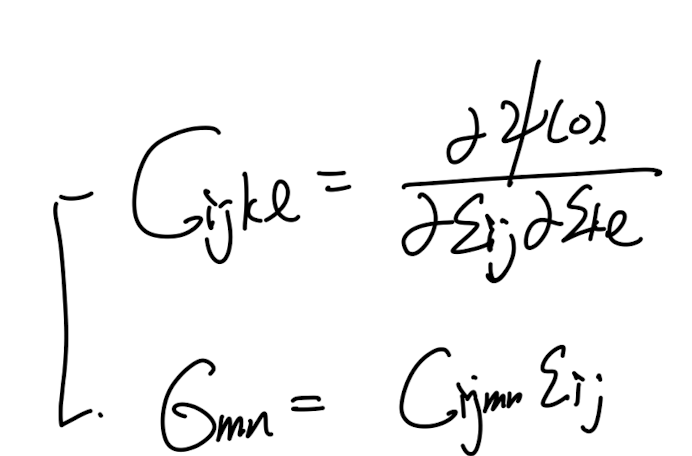 C_{ijkl} = \frac{\partial \psi(0)}{\partial \varepsilon_{ij} \partial \varepsilon_{kl}}
\sigma_{mn} = C_{ijmn} \varepsilon_{ij}